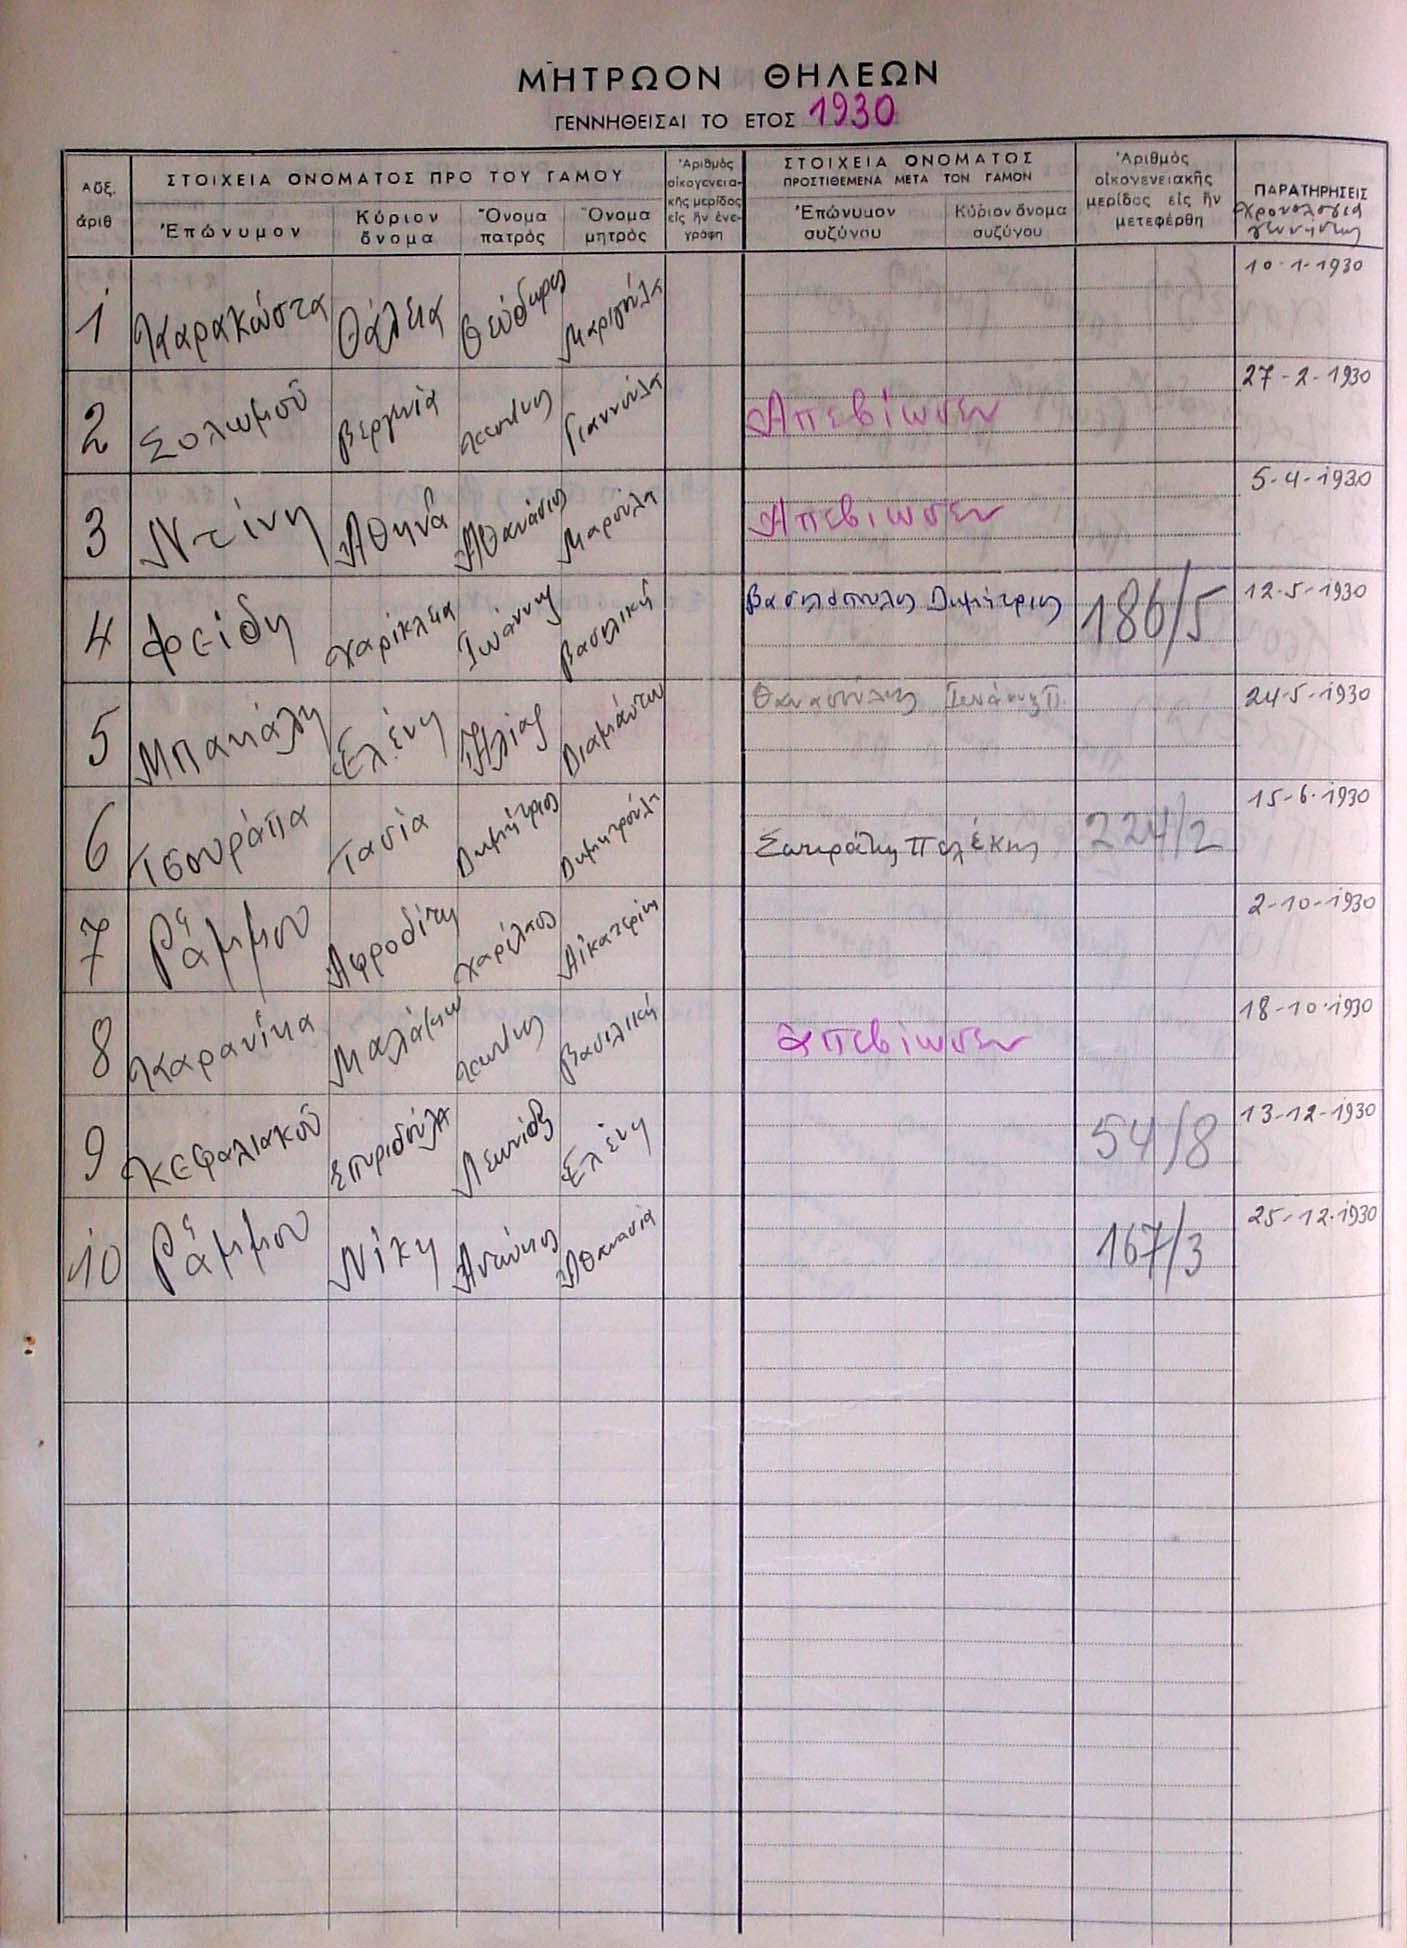 ΜΗΤΡΩΟΝ ΘΗΛΕΩΝ
ΓΕΝΝΗΘΕΙΣΑΙ ΤΟ ΕΤΟΣ 1930
Αὔξ. ἀριθ
ΣΤΟΙΧΕΙΑ ΟΝΟΜΑΤΟΣ ΠΡΟ ΤΟΥ ΓΑΜΟΥ
Ἐπώνυμον
Κύριον ὄνομα
Ὄνομα πατρὸς
Ὄνομα μητρὸς
Ἀριθμὸς οἰκογενεια-κῆς μερίδος εἰς ἣν ἐνε-γράφη
ΣΤΟΙΧΕΙΑ ΟΝΟΜΑΤΟΣ
ΠΡΟΣΤΙΘΕΜΕΝΑ ΜΕΤΑ ΤΟΝ ΓΑΜΟΝ
Ἐπώνυμον συζύγου
Κύριον ὄνομα συζύγου
Ἀριθμὸς οἰκογενειακῆς μερίδος εἰς ἣν μετεφέρθη
ΠΑΡΑΤΗΡΗΣΕΙΣ
Χρονολογία γεννήσεως
1 Καρακώστα Θάλεια Θεόδωρος Μαριγούλα 10-1-1930
2 Σολωμοῦ Βεργινία Γιαννούλα Ἀπεβίωσεν 27-2-1930
3 Ντίνη Ἀθηνᾶ Ἀθανάσιος Μαρούλη Ἀπεβίωσεν 5-4-1930
4 Φείδη Χαρίκλεια Ἰωάννης Βασιλική Βασιλόπουλος Δημήτριος 186/5 12-5-1930
5 Μπακάλη Ἑλένη Ἠλίας Διαμάντω Θανασούλης Ἰωάννης Π. 24-5-1930
6 Τσουράπα Τασία Δημήτριος Δημητρούλα Σωκράτης Πελέκης 224/2 15-6-1930
7 Ράμμου Ἀφροδίτη Χαρίλαος Αἰκατερίνη 2-10-1930
8 Καρανίκα Μαλάμω Βασιλική ἀπεβίωσεν 18-10-1930
9 Κεφαλιακοῦ Σπυριδούλα Λεωνίδας Ἑλένη 54/8 13-12-1930
10 Ράμμου Νίκη Ἀντώνιος Ἀθανασία 167/3 25-12-1930